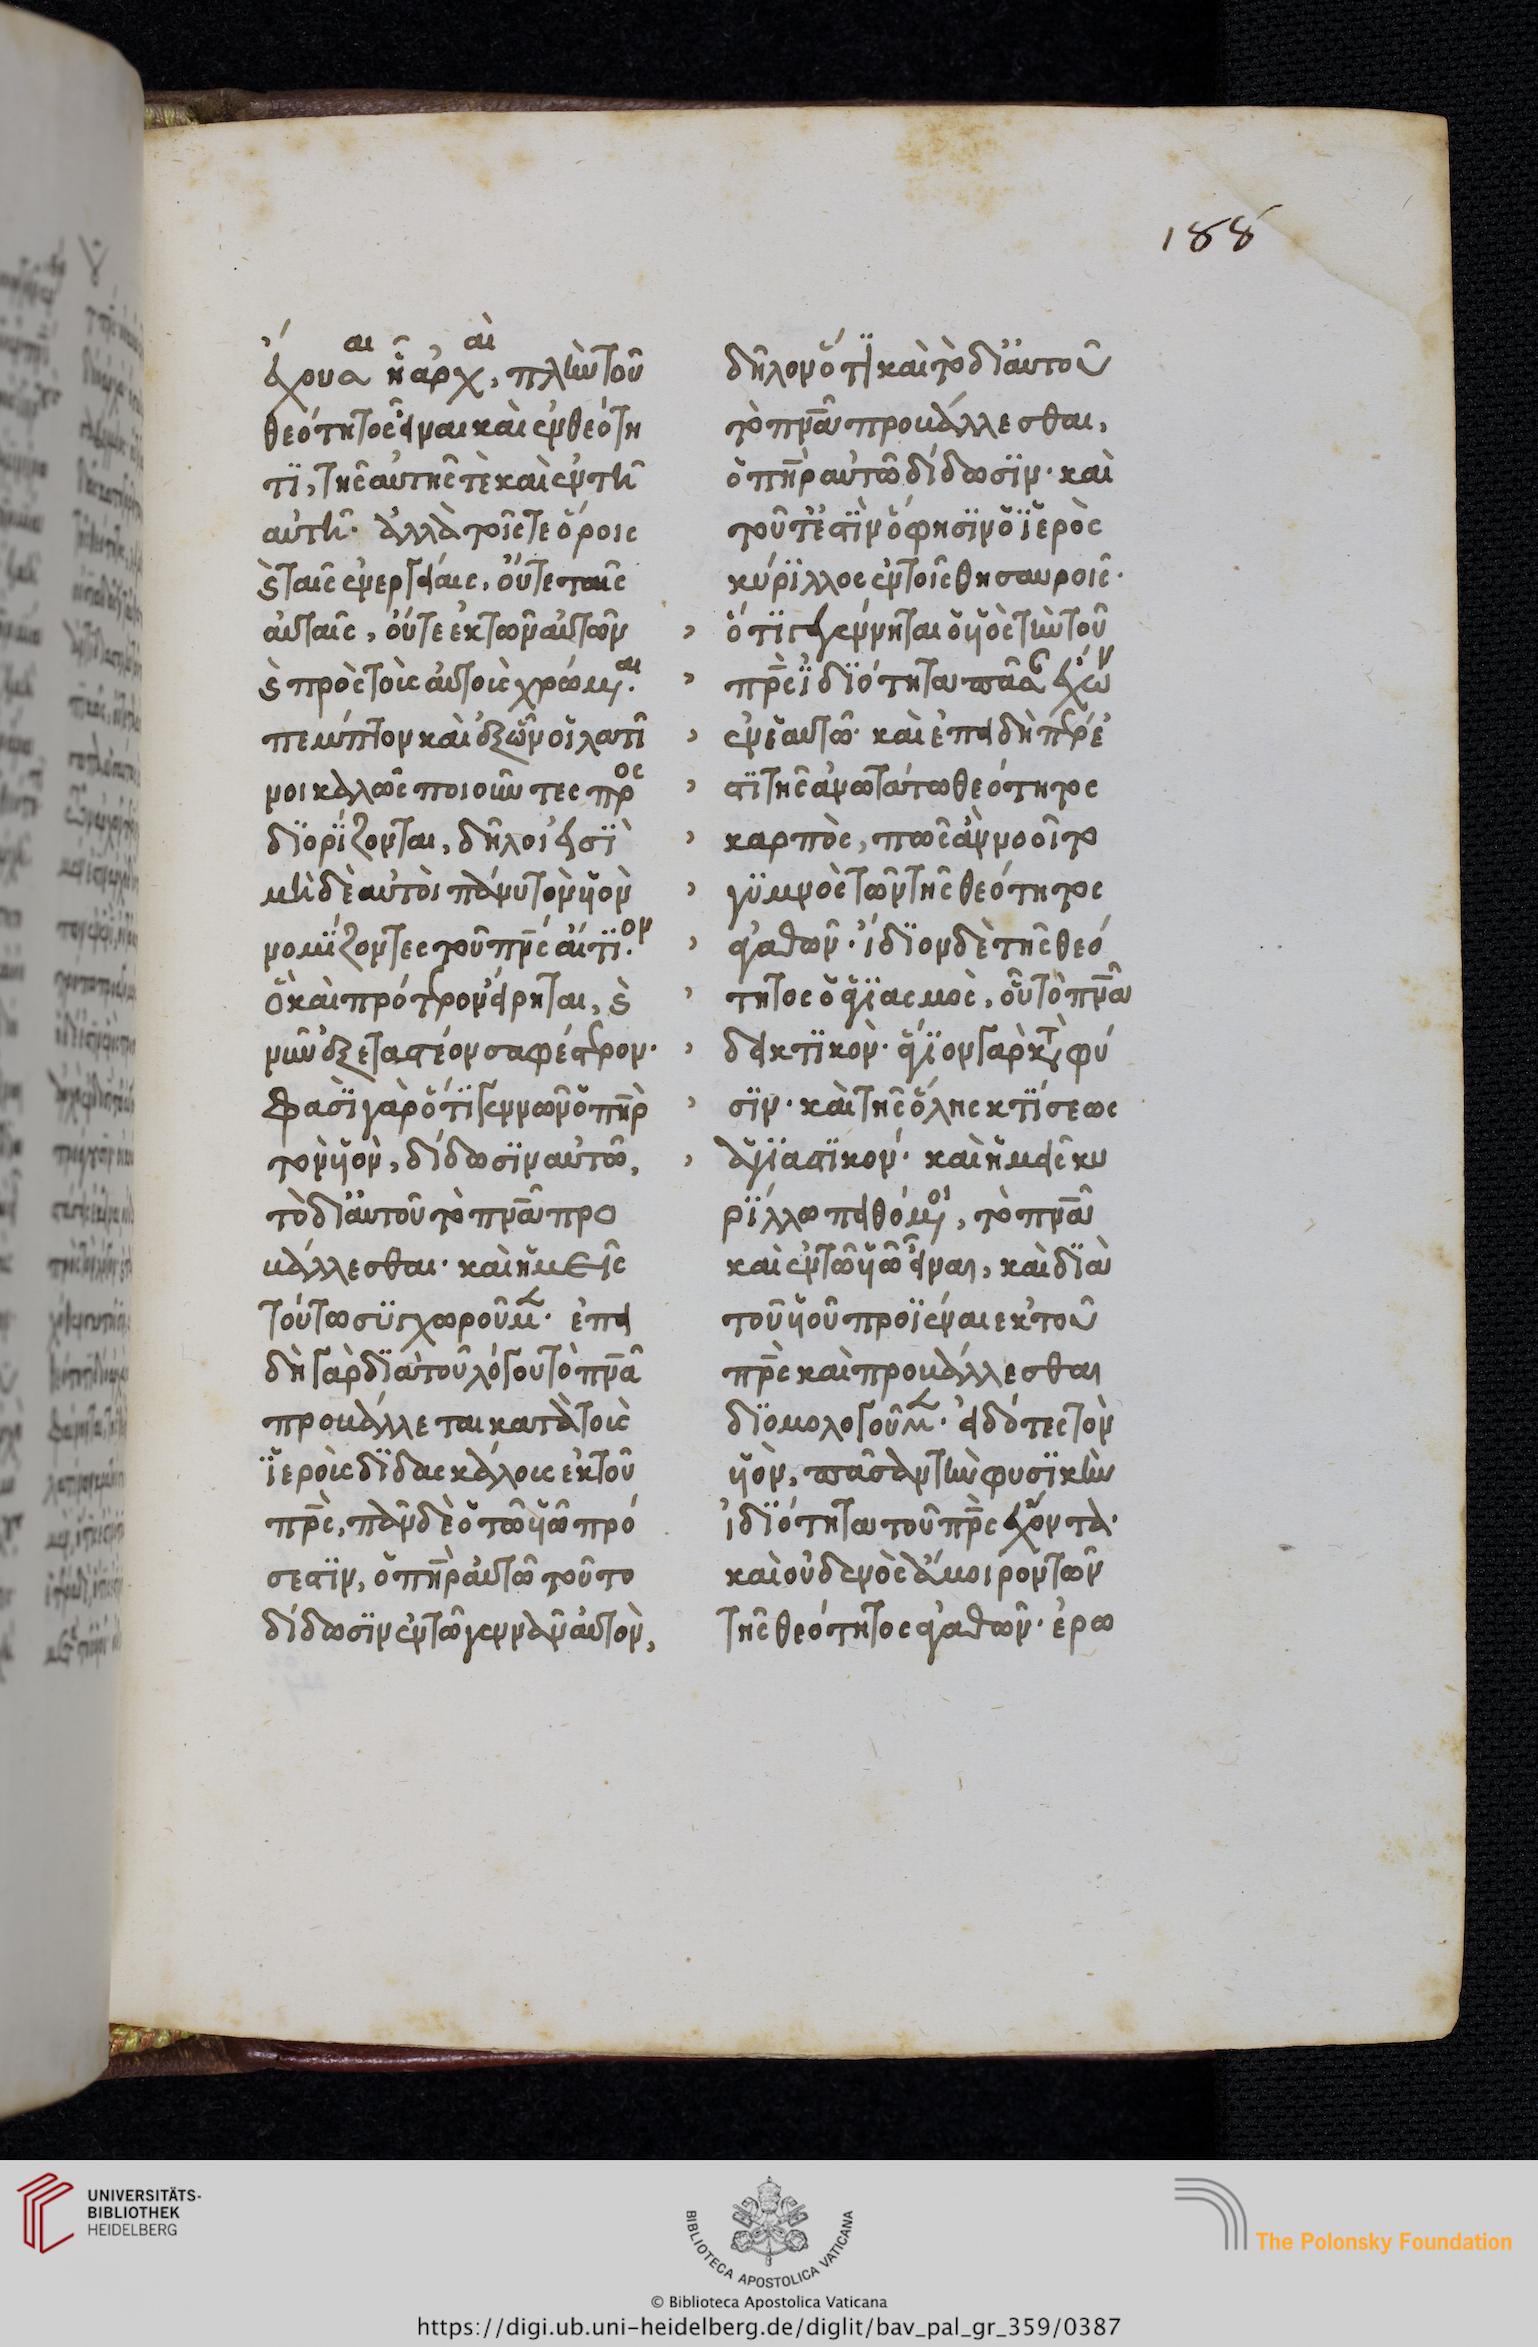 188
ἔχουσαι ἢ ἀρχαὶ, πλὴν τοῦ
θεότητος εἶναι καὶ ἐν θεότη
τϊ, τῆς αὐτῆς τὲ καὶ ἐν τῆ
αὐτῆ· ἀλλὰ τοῖς τε ὅροις
ϛ ταῖς ἐνεργείαις, οὔτε ταῖς
αὐταῖς, οὔτε ἐκ τῶν αὐτῶν
ϛ πρὸς τοῖς αὐτοῖς χρώμαι.
πεμπτον καὶ ἐξ ὧν οἱ λατῖ
νοι καλῶς ποιοῦντες προς
διορίζονται, δῆλοι εἰσὶ
μὴ δὲ αὐτοὶ πάνυ τὸν υἱὸν
νομίζοντες τοῦ πνς αἴτιον.
ὃ καὶ πρότερον εἴρηται, ϛ
νῦν ἐξεταστέον σαφέστερον·
Φασὶ γὰρ ὅτι γεννῶν ὁ πηρ
τὸν υἱὸν, δίδωσιν αὐτῶ,
τὸ δι αὐτοῦ τὸ πνα προ
βάλλεσθαι· καὶ ἡμεῖς
τούτω συγχωροῦμεν· ἐπει
δὴ γὰρ διὰ τοῦ λόγου τὸ πνα
προβάλλεται κατὰ τοὺς
ἱεροὺς διδασκάλους ἐκ τοῦ
πρς, πᾶν δὲ ὃ τῶ υἱῶ πρό
σεστιν, ὁ πηρ αὐτῶ τοῦτο
δίδωσιν ἐν τῶ γεννᾶν αὐτὸν,
δῆλον ὅτι καὶ τὸ δι αὐτοῦ
τὸ πνα προβάλλεσθαι,
ὁ πηρ αὐτῶ δίδωσιν· καὶ
τοῦτ ἐστὶν ὅ φησιν ὁ ἱερὸς
κύριλλος ἐν τοῖς θησαυροῖς·
ὅτι γεγέννηται ὁ υἱὸς τὴν τοῦ
πρς ἰδιότητα πᾶσαν ἔχων
ἐν ἑαυτῶ· καὶ ἐπειδήπερ ἐ
στὶ τῆς ἀνωτάτω θεότητος
καρπὸς, πῶς ἂν νοοῖτο
γυμνὸς τῶν τῆς θεότητος
ἀγαθῶν· ἴδιον δὲ τῆς θεό
τητος ὁ ἁγιασμὸς, οὗ τὸ πνα
δεικτικὸν· ἅγιον γὰρ κατὰ φύ
σιν· καὶ τῆς ὅλης κτίσεως
ἁγιαστικόν· καὶ ἡμεῖς κυ
ρίλλω πειθόμενοι, τὸ πνα
καὶ ἐν τῶ υἱῶ εἶναι, καὶ διὰ
τοῦ υἱοῦ προϊέναι ἐκ τοῦ
πρς καὶ προβάλλεσθαι
διομολογοῦμεν· εἰδότες τὸν
υἱὸν, πᾶσαν τὴν φυσικὴν
ἰδιότητα τοῦ πρς ἔχοντα·
καὶ οὐδενὸς ἄμοιρον τῶν
τῆς θεότητος ἀγαθῶν· ἐρω
UNIVERSITÄTS-
BIBLIOTHEK
HEIDELBERG
BIBLIOTECA APOSTOLICA VATICANA
The Polonsky Foundation
© Biblioteca Apostolica Vaticana
https://digi.ub.uni-heidelberg.de/diglit/bav_pal_gr_359/0387